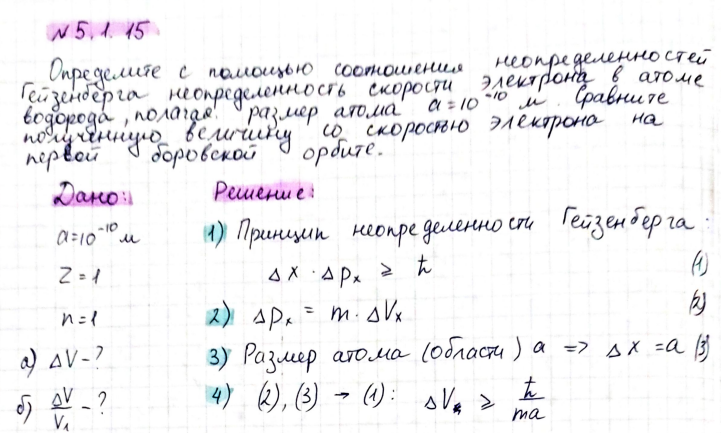 № 5.1.15
Определите с помощью соотношения неопределенностей
Гейзенберга неопределенность скорости электрона в атоме
водорода, полагая размер атома a = 10⁻¹⁰ м. Сравните
полученную величину со скоростью электрона на
первой боровской орбите.
Дано:
a = 10⁻¹⁰ м
Z = 1
n = 1
а) ΔV - ?
б) ΔV/V₁ - ?
Решение:
1) Принцип неопределенности Гейзенберга:
Δx · Δpₓ ≥ ħ (1)
2) Δpₓ = m · ΔVₓ (2)
3) Размер атома (области) a => Δx = a (3)
4) (2), (3) → (1): ΔVₓ ≥ ħ/ma